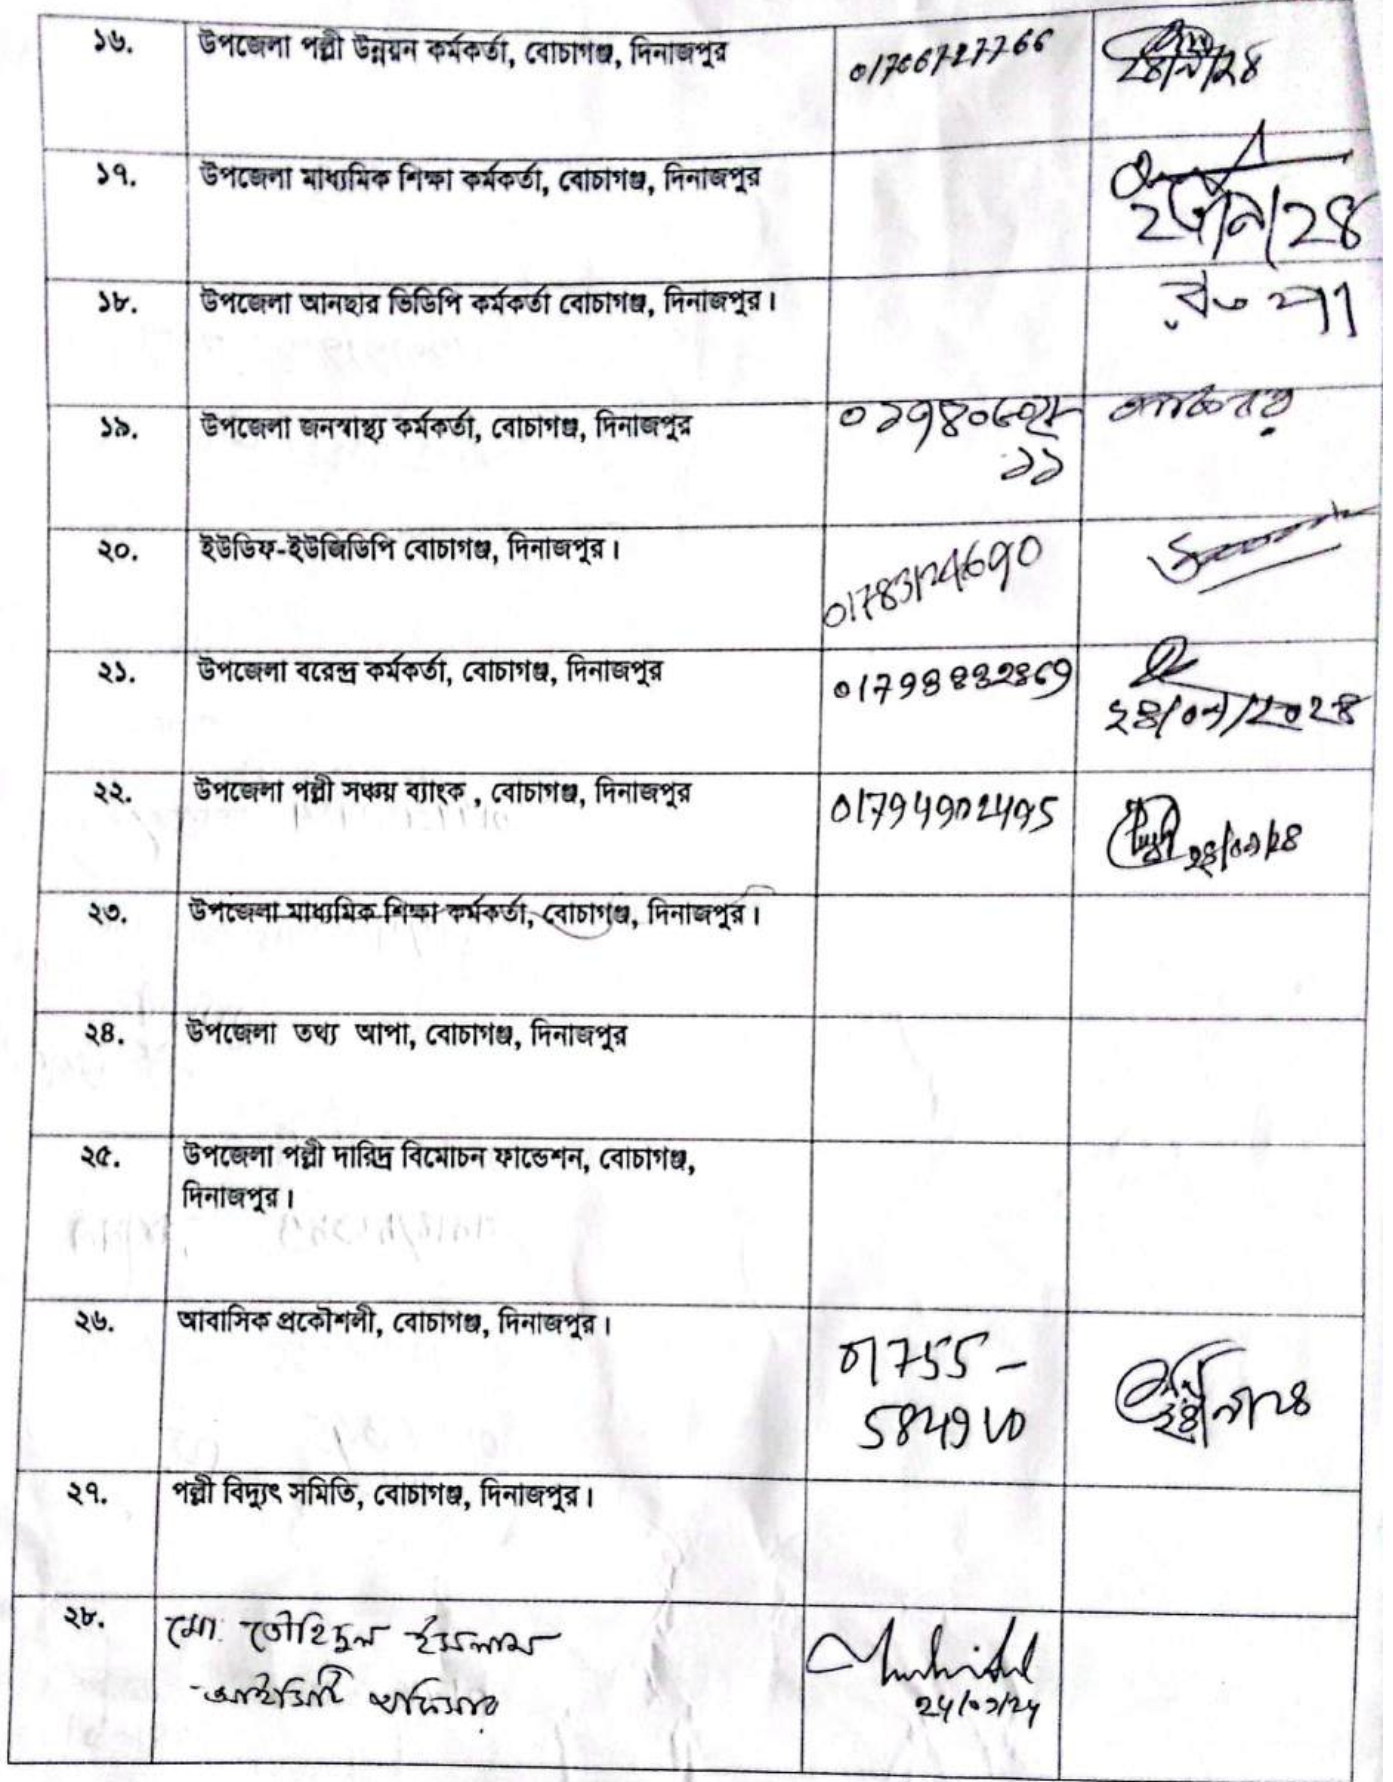 ১৬. উপজেলা পল্লী উন্নয়ন কর্মকর্তা, বোচাগঞ্জ, দিনাজপুর 01706727766
১৭. উপজেলা মাধ্যমিক শিক্ষা কর্মকর্তা, বোচাগঞ্জ, দিনাজপুর
১৮. উপজেলা আনছার ভিডিপি কর্মকর্তা বোচাগঞ্জ, দিনাজপুর।
১৯. উপজেলা জনস্বাস্থ্য কর্মকর্তা, বোচাগঞ্জ, দিনাজপুর
২০. ইউডিফ-ইউজিডিপি বোচাগঞ্জ, দিনাজপুর।
২১. উপজেলা বরেন্দ্র কর্মকর্তা, বোচাগঞ্জ, দিনাজপুর
২৪/০৯/২০২৪
২২. উপজেলা পল্লী সঞ্চয় ব্যাংক , বোচাগঞ্জ, দিনাজপুর
২৪/০৯/২৪
২৩. উপজেলা মাধ্যমিক শিক্ষা কর্মকর্তা, বোচাগঞ্জ, দিনাজপুর।
২৪. উপজেলা তথ্য আপা, বোচাগঞ্জ, দিনাজপুর
২৫. উপজেলা পল্লী দারিদ্র বিমোচন ফান্ডেশন, বোচাগঞ্জ,
দিনাজপুর।
২৬. আবাসিক প্রকৌশলী, বোচাগঞ্জ, দিনাজপুর।
01755-
২৭. পল্লী বিদ্যুৎ সমিতি, বোচাগঞ্জ, দিনাজপুর।
২৮. মো: তৌহিদুল ইসলাম
আইসিটি অফিসার